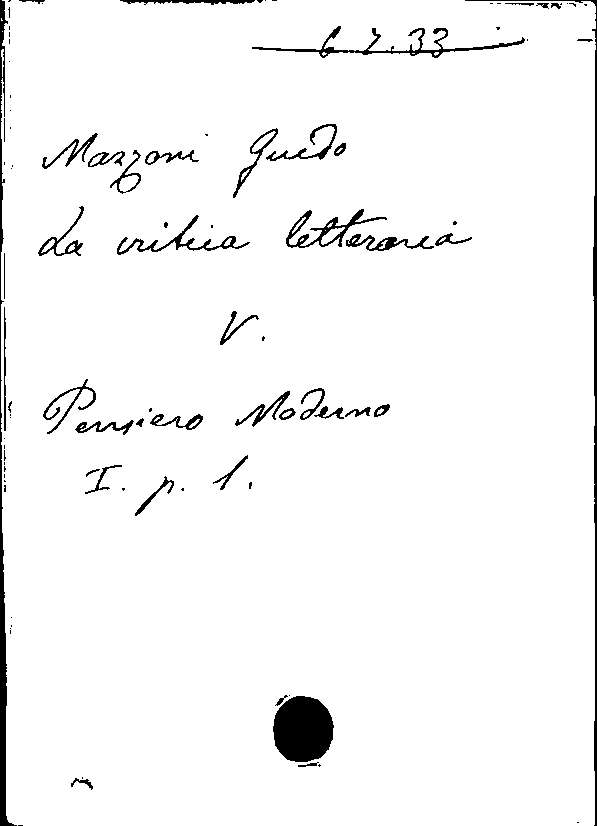 6 7. 33
Mazzoni Guido
La critica letteraria
V.
Pensiero Moderno
I. p. 1.